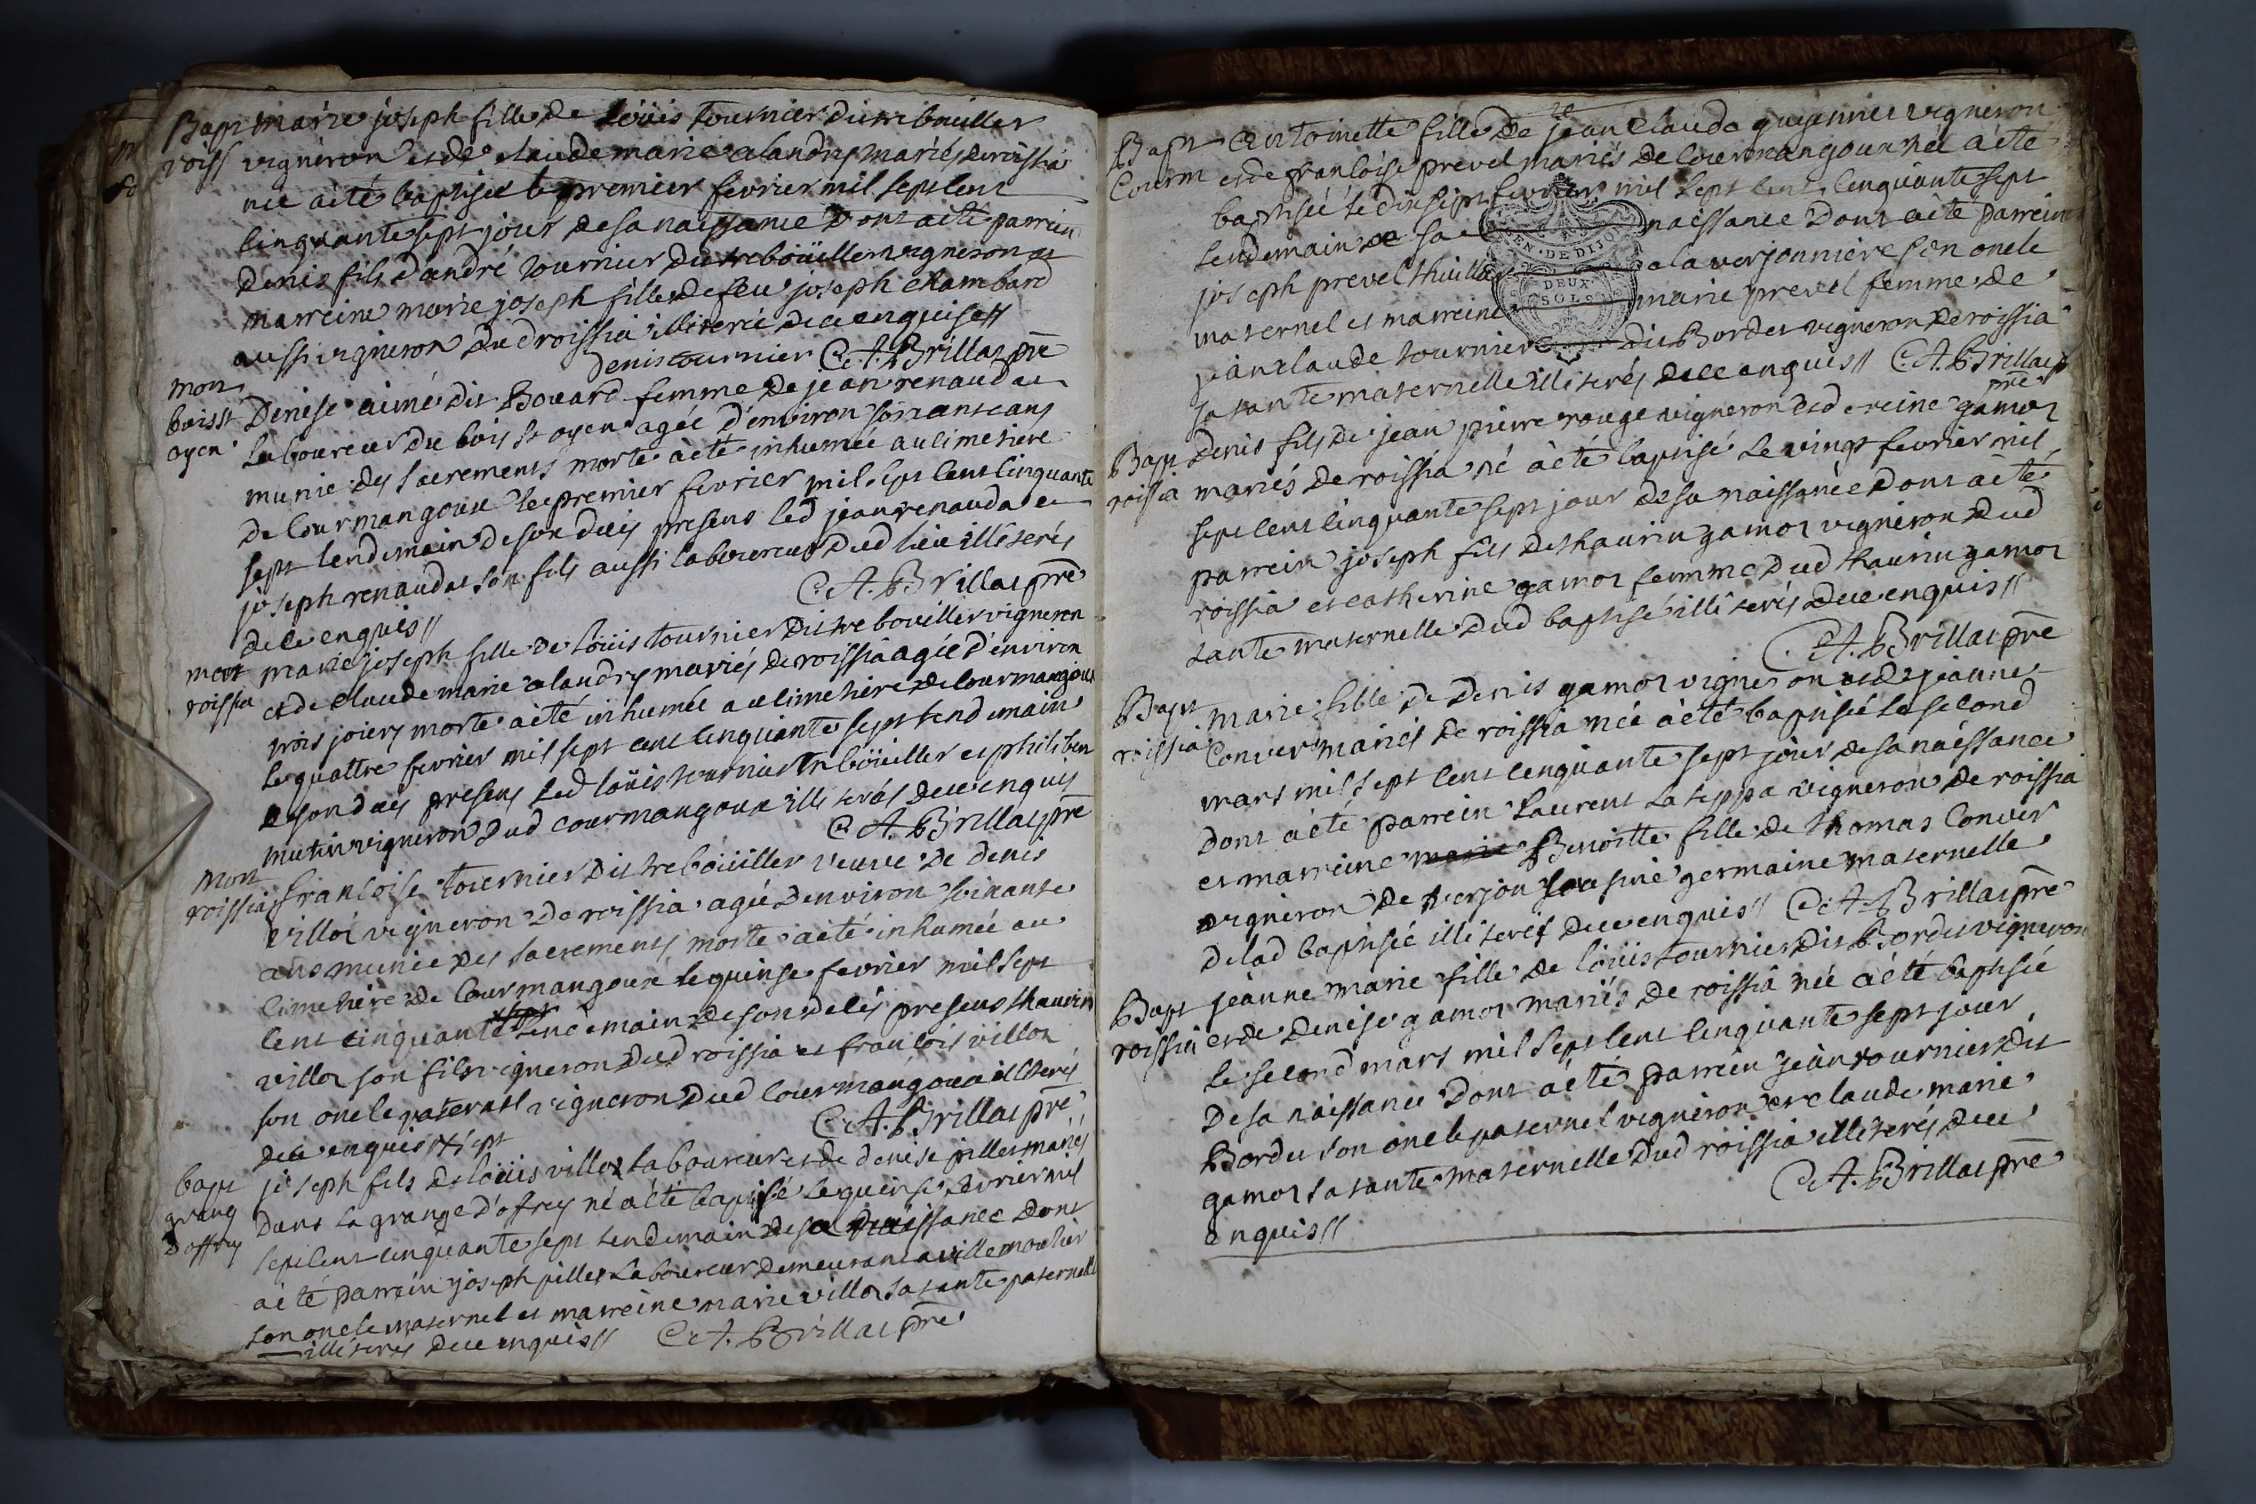 Bapt marie joseph fille de loüis tournier dit trebouiller
roiss vigneron et de claude marie alandry mariés de roissia
née a été baptisée le premier fevrier mil sept cent
cinquante sept jour de sa naissance dont a été parrein
denis fils d'andré tournier dit trebouiller vigneron et
marreine marie joseph fille de feu joseph chambard
aussi vigneron dud roissia illiterée de ce enquise//
Denis tournier C. A. Brillat pre
mort
boisst
oyen
Denise aimé dit Bouard femme de jean renaudat
laboureur du bois st oyen agée d'environ soixante ans
munie des sacrements morte a été inhumée au cimetiere
de Courmangoux le premier fevrier mil sept cent cinquante
sept lendemain de son deces presens led jean renaudat et
joseph renaudat son fils aussi laboureur dud lieu illiterés
de ce enquis// C. A. Brillat pre
mort
roissia
marie joseph fille de loüis tournier dit trebouiller vigneron
et de claude marie alandry mariés de roissia agée d'environ
trois jours morte a été inhumée au cimetiere de courmangoux
le quattre fevrier mil sept cent cinquante sept lendemain
de son deces presens led loüis tournier trebouiller et philiben
mutin vigneron dud courmangoux illiterés de ce enquis
C. A. Brillat pre
mort
roissia
francoise tournier dit trebouiller veuve de denis
villot vigneron de roissia agée d'environ soixante
ans munie des sacrements morte a été inhumée au
cimetiere de Courmangoux le quinze fevrier mil sept
cent cinquante sept lendemain de son deces presens thaurin
villot son fils vigneron dud roissia et francois villot
son oncle paternel vigneron dud courmangoux illiterés
de ce enquis // sept C. A. Brillat pre
bapt
grang
d'offrey
joseph fils de loüis villot laboureur et de denise pillet mariés
dans la grange d'ofrey né a été baptisé le quinze fevrier mil
sept cent cinquante sept lendemain de sa naissance dont
a été parrein joseph pillet laboureur demeurant a villemoutier
son oncle maternel et marreine marie villot sa tante paternelle
illiterés de ce enquis// C. A. Brillat pre
Bapt
Courm
Antoinette fille de jean Claude guyennet vigneron
et de francoise prevel mariés de courmangoux née a été
baptisée le dix sept fevrier mil sept cent cinquante sept
lendemain de sa naissance dont a été parrein
joseph prevel thuillier a la verjonniere son oncle
maternel et marreine marie prevel femme de
jean claude tournier dit Bordet vigneron de roissia
sa tante maternelle illiterés de ce enquis// C. A. Brillat
pre
GEN · DE DIJON
DEUX
SOLS
Bapt
roissia
Denis fils de jean pierre rouge vigneron et de reine gamot
mariés de roissia né a été baptisé le vingt fevrier mil
sept cent cinquante sept jour de sa naissance dont a été
parrein joseph fils de thaurin gamot vigneron dud
roissia et catherine gamot femme dud thaurin gamot
tante maternelle dud baptisé illiterés de ce enquis//
C. A. Brillat pre
Bapt
roissia
marie fille de denis gamot vigneron et de jeanne
Convert mariés de roissia née a été baptisée le second
mars mil sept cent cinquante sept jour de sa naissance
dont a été parrein laurent la teppa vigneron de roissia
et marreine marie Benoitte fille de thomas Convert
vigneron de verjon sa cousine germaine maternelle
de lad baptisée illiterés de ce enquis// C. A. Brillat pre
Bapt
roissia
jeanne marie fille de loüis tournier dit Bordet vigneron
et de denise gamot mariés de roissia née a été baptisée
le second mars mil sept cent cinquante sept jour
de sa naissance dont a été parrein jean tournier dit
Bordet son oncle paternel vigneron et claude marie
gamot sa tante maternelle dud roissia illiterés de ce
enquis// C. A. Brillat pre